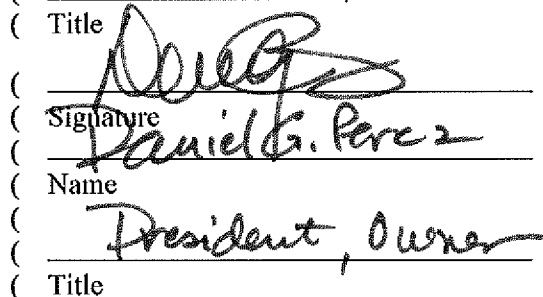 ( Title
(
( Signature
( Daniel G. Perez
( Name
(
( President, Owner
( Title